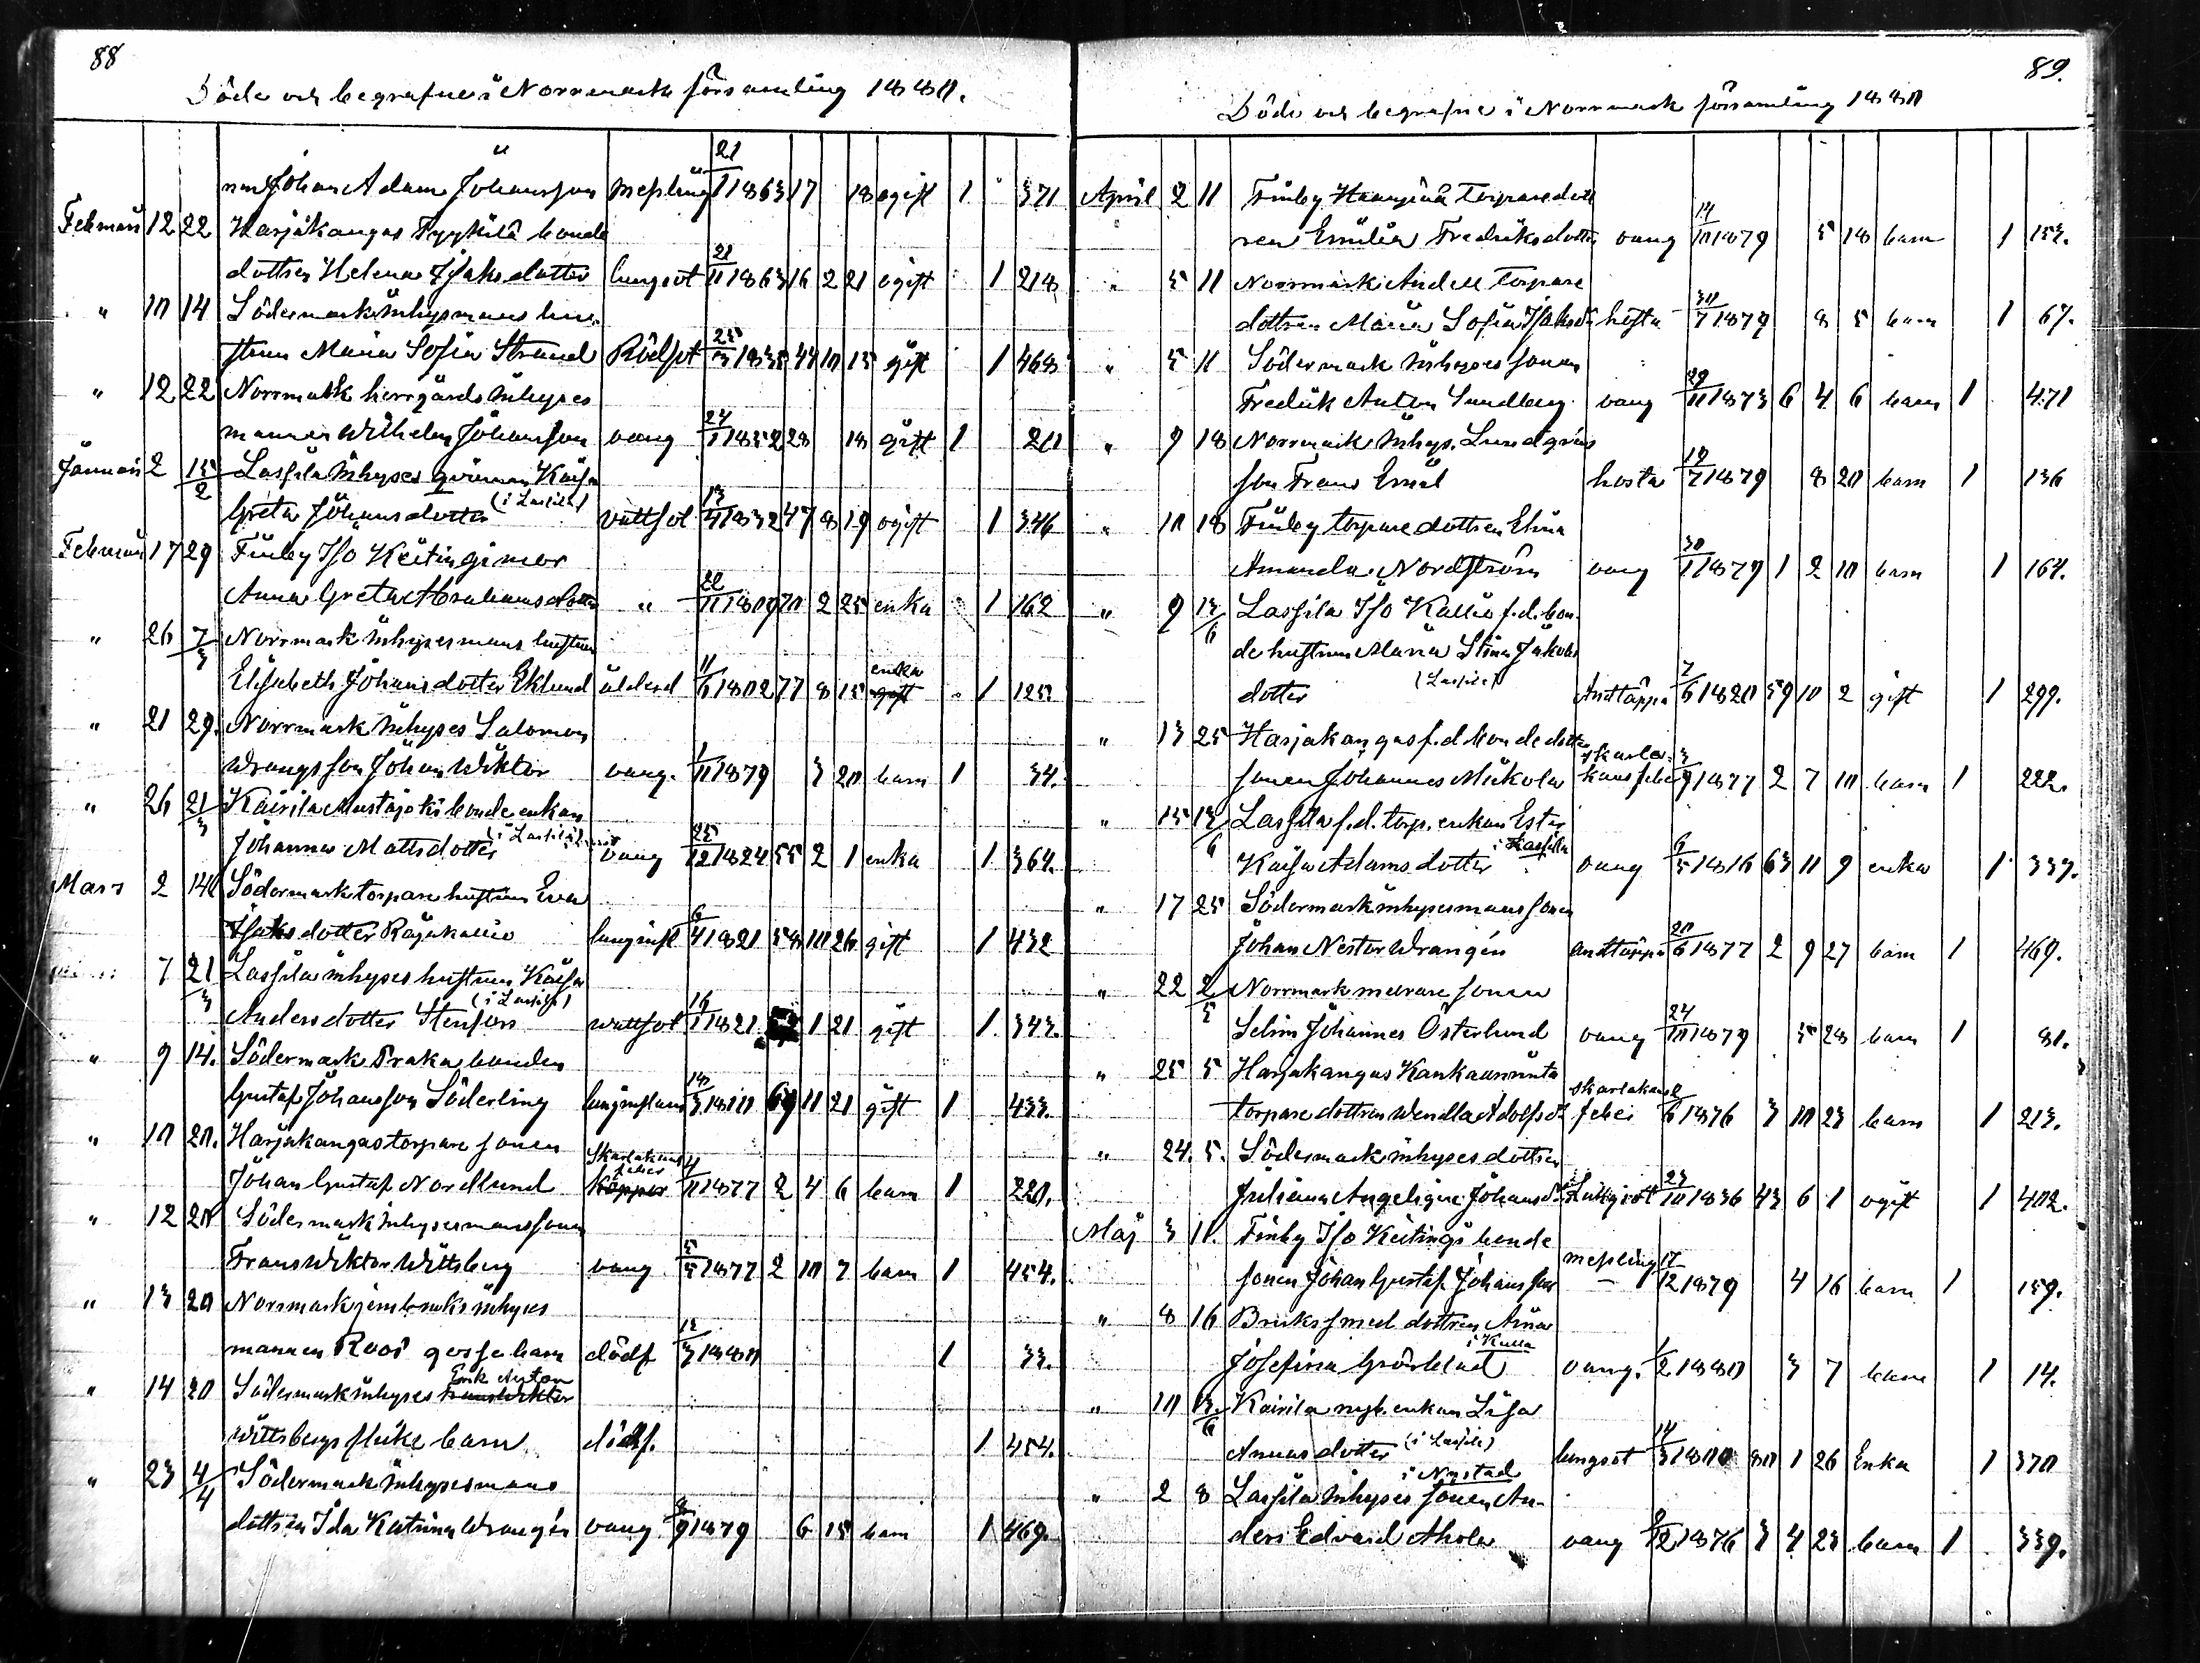 88
Döde och begrafne i Norrmark församling 1880.
21
nen Johan Adam Johansson messling 1 1863 17 18 ogift 1 371
Februari 12 22 Harjakangas Pyykilä bonde
21
dottren Helena Isaksdotter lungsot 11 1863 16 2 21 ogift 1 218
" 10 14 Södermark inhysmans hu-
25
strun Maria Sofia Strand Rödsot 3 1835 44 10 15 gift 1 468
" 12 22 Norrmark herrgårds inhyses
24
mannen Wilhelm Johansson oang 1 1852 28 18 gift 1 20
Januari 2 15/2 Lassila inhyses qvinnan Kaisa
(i Lassila)
13
Greta Johansdotter vattsot 4 1832 47 8 19 ogift 1 346
Februari 17 29 Finby Iso Keitingi mor
22
Anna Greta Abrahamsdotter " 11 1809 70 2 25 enka 1 162
" 26 7/3 Norrmark inhysesmans hustrun
11 enka
Elisabeth Johansdotter Eklund ålderd 6 1802 77 8 15 gift 1 125
" 21 29. Norrmark inhyses Salomon
1
Wrangs son Johan Wiktor oang. 11 1879 3 20 barn 1 34.
" 26 21/3 Kairila Mustajoki bonde enkan
25
Johanna Mattsdotter oang 12 1824 55 2 1 enka 1 364.
Mars 2 14 Södermark torpare hustrun Eva
6
Isaksdotter Rajakallio lunginfl 4 1821 58 10 26 gift 1 432
7 21/3 Lassila inhyses hustrun Kaisa
(i Lassila)
16
Andersdotter Stenfors wattsot 1 1821 1 21 gift 1 343.
" 9 14. Södermark Praka bonden
18
Gustaf Johansson Söderling lunginflam 3 1810 69 11 21 gift 1 433.
" 10 20. Harjakangas torpare sonen
Skarlakans
feber 4
Johan Gustaf Nordlund koppor 11 1877 2 4 6 barn 1 220.
" 12 20 Södermark inhysesmans sonen
5
Frans Wiktor Wittsberg oang 5 1877 2 10 7 barn 1 454.
" 13 20 Norrmark jernbruks inhyses
13
mannen Roos gosse barn dödf 3 1880 1 33.
Erik Anton
" 14 20 Södermark inhyses Frans Wiktor
Wittsbergs flicke barn dödf. 1 454.
" 23 4/4 Södermark inhysesmans
8
dottren Ida Katrina Wrangén oang 9 1879 6 15 barn 1 469.
89.
Döde och begrafne i Norrmark församling 1880
April 2 11 Finby Haarjinä torparedott
14
ren Emilia Fredriksdotter oang 10 1879 5 18 barn 1 153.
" 5 11 Norrmark Andell torpare
30
dottren Maria Sofia Isaksdr hosta 7 1879 8 5 barn 1 67.
" 5 11 Södermark inhyses sonen
29
Fredrik Anton Sundberg oang 11 1873 6 4 6 barn 1 471
" 9 18 Norrmark inhys. Lundgréns
19
son Frans Emil hosta 7 1879 8 20 barn 1 136
" 10 18 Finby torpare dottren Elina
30
Amanda Nordström oang 1 1879 1 2 10 barn 1 164.
" 9 13/6 Lassila Iso Kallio f.d. bon-
de hustrun Maria Stina Jakobs
(Lassila) 7
dotter Andtäppa 6 1820 59 10 2 gift 1 299.
" 13 25 Harjakangas f.d. bonde dotter
skarla- 3
sonen Johannes Mickola kansfeber 9 1877 2 7 10 barn 1 222.
" 15 13/6 Lassila f.d. torp. enkan Ester
i Lassila 6
Kaisa Adamsdotter oang 5 1816 63 11 9 enka 1 337.
" 17 25 Södermark inhysesmans sonen
20
Johan Nestor Wrangén andtäppa 6 1877 2 9 27 barn 1 469.
" 22 2/5 Norrmark murare sonen
24
Selim Johannes Österlund oang 10 1879 5 28 barn 1 81.
" 25 5 Harjakangas Kankaanniita
skarlakans 2
torpare dottren Wendla Adolfsdr feber 6 1876 3 10 23 barn 1 213.
" 24. 5. Södermark inhyses dottren
23
Juliana Angelique Johansdr Lungsot 10 1836 43 6 1 ogift 1 402.
Maj 3 11. Finby Iso Keitingi bonde
messling 17
sonen Johan Gustaf Johansson 12 1879 4 16 barn 1 159.
" 8 16 Bruks smed dottren Aina
i Kulla 1
Josefina Grönblad oang. 2 1880 3 7 barn 1 14.
" 10 13/6 Kairila nyb. enkan Lisa
(i Lassila) 14
Annasdotter lungsot 3 1800 80 1 26 Enka 1 370
i Nystad
" 2 8 Lassila inhyses sonen An-
9
ders Edvard Ahola oang 12 1876 3 4 23 barn 1 339.